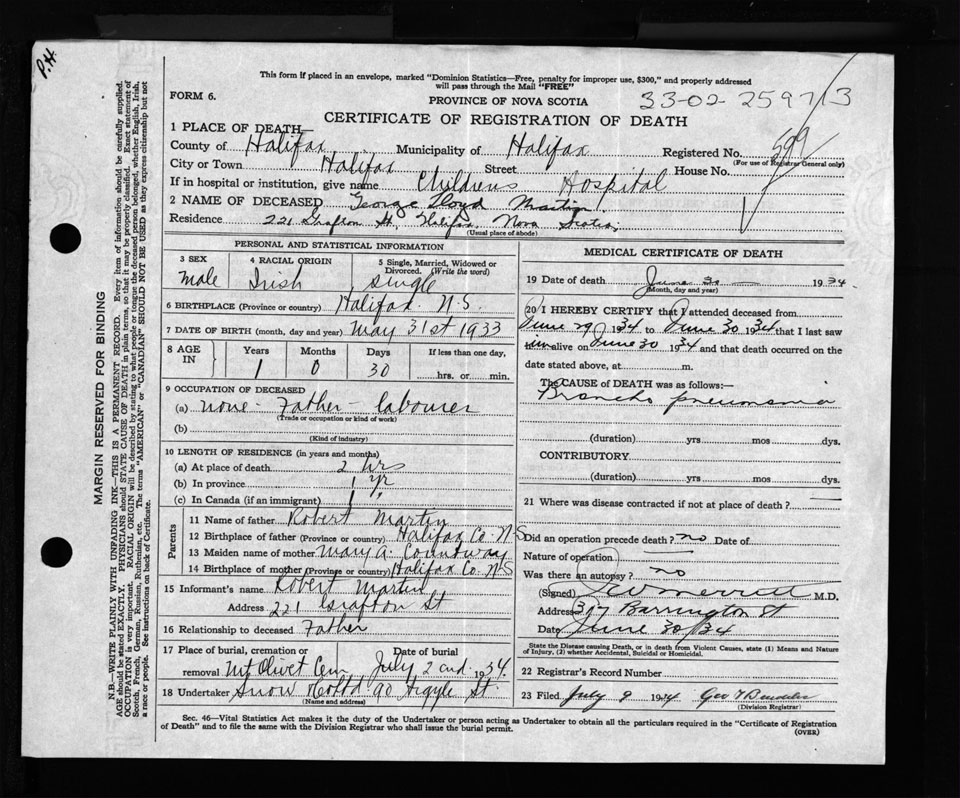 P.H.
This form if placed in an envelope, marked "Dominion Statistics—Free, penalty for improper use, $300," and properly addressed
will pass through the Mail "FREE"
FORM 6.
PROVINCE OF NOVA SCOTIA
33-02-259713
CERTIFICATE OF REGISTRATION OF DEATH
1 PLACE OF DEATH—
County of Halifax Municipality of Halifax Registered No. 599
(For use of Registrar General only)
City or Town Halifax Street House No.
If in hospital or institution, give name Childrens Hospital
2 NAME OF DECEASED George Lloyd Martin
Residence 221 Grafton St, Halifax, Nova Scotia,
(Usual place of abode)
PERSONAL AND STATISTICAL INFORMATION
3 SEX 4 RACIAL ORIGIN 5 Single, Married, Widowed or
Divorced. (Write the word)
Male Irish single
6 BIRTHPLACE (Province or country) Halifax N.S.
7 DATE OF BIRTH (month, day and year) May 31st 1933
8 AGE IN Years Months Days If less than one day,
1 0 30 hrs. or min.
9 OCCUPATION OF DECEASED
(a) none - Father - labourer
(Trade or occupation or kind of work)
(b)
(Kind of industry)
10 LENGTH OF RESIDENCE (in years and months)
(a) At place of death 2 hrs
(b) In province 1 yr
(c) In Canada (if an immigrant) 1 "
Parents
11 Name of father Robert Martin
12 Birthplace of father (Province or country) Halifax Co. N-S
13 Maiden name of mother Mary A. Countway
14 Birthplace of mother (Province or country) Halifax Co. N-S
15 Informant's name Robert Martin
Address 221 Grafton St
16 Relationship to deceased Father
17 Place of burial, cremation or removal Date of burial
Mt Olivet Cem July 2nd 1934.
18 Undertaker Snow & Co Ltd 90 Argyle St.
(Name and address)
MEDICAL CERTIFICATE OF DEATH
19 Date of death June 30 1934
(Month, day and year)
20 I HEREBY CERTIFY that I attended deceased from
June 29 1934 to June 30 1934 that I last saw
him alive on June 30 1934 and that death occurred on the
date stated above, at m.
The CAUSE of DEATH was as follows:—
Broncho pneumonia
(duration) yrs mos dys.
CONTRIBUTORY
(duration) yrs mos dys.
21 Where was disease contracted if not at place of death?
Did an operation precede death? no Date of
Nature of operation
Was there an autopsy? no
(Signed) Merritt M.D.
Address 317 Barrington St
Date June 30/34
State the Disease causing Death, or in death from Violent Causes, state (1) Means and Nature
of Injury, (2) whether Accidental, Suicidal or Homicidal.
22 Registrar's Record Number
23 Filed July 9 1934 Geo
(Division Registrar)
Sec. 46—Vital Statistics Act makes it the duty of the Undertaker or person acting as Undertaker to obtain all the particulars required in the "Certificate of Registration
of Death" and to file the same with the Division Registrar who shall issue the burial permit.
(OVER)
MARGIN RESERVED FOR BINDING
N.B.—WRITE PLAINLY WITH UNFADING INK—THIS IS A PERMANENT RECORD. Every item of information should be carefully supplied.
AGE should be stated EXACTLY. PHYSICIANS should STATE CAUSE OF DEATH in plain terms, so that it may be properly classified. Exact statement of
OCCUPATION is very important. RACIAL ORIGIN will be described by stating to what people or tongue the deceased person belonged, whether English, Irish,
Scotch, French, German, Russian, Ruthenian, etc. The terms "AMERICAN" or "CANADIAN" SHOULD NOT BE USED as they express citizenship but not
a race or people. See instructions on back of Certificate.